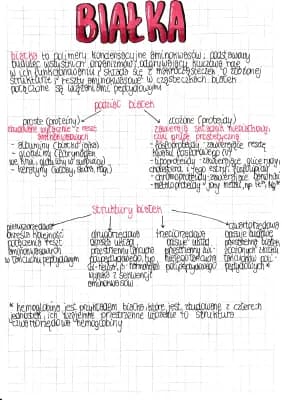 BIAŁKA
białka to polimery kondensacyjne aminokwasów; podstawowy
budulec wszystkich organizmów; odgrywający kluczową rolę
w ich funkcjonowaniu; składa się z makrocząsteczek o złożonej
strukturze; reszty aminokwasowe w cząsteczkach białek
połączone są wiązaniami peptydowymi
podział białek
proste (proteiny)
zbudowane wyłącznie z reszt
aminokwasowych
- albuminy (białko jajka)
- globuliny
we krwi
- keratyny
złożone (proteidy)
zawierają składnik niebiałkowy
czyli grupę prostetyczną
- fosfoproteidy zawierające resztę
kwasu fosforowego (V)
- lipoproteidy zawierające
cholesterol i jego estry
- chromoproteidy zawierające barwniki
- metaloproteidy jony metali, np.
struktury białek
pierwszorzędowa
określa kolejność
połączenia reszt
aminokwasowych
w łańcuchu peptydowym
drugorzędowa
opisuje układ
przestrzenny łańcucha
polipeptydowego, typ
wynika z sekwencji
aminokwasów
trzeciorzędowa
opisuje układ
przestrzenny
łańcucha
polipeptydowego
czwartorzędowa
opisuje budowę
przestrzenną białek
złożonych z kilku
łańcuchów poli-
peptydowych*
* hemoglobina jest przykładem białka, które jest zbudowane z czterech
jednostek; ich wzajemne przestrzenne ułożenie to struktura
czwartorzędowa hemoglobiny